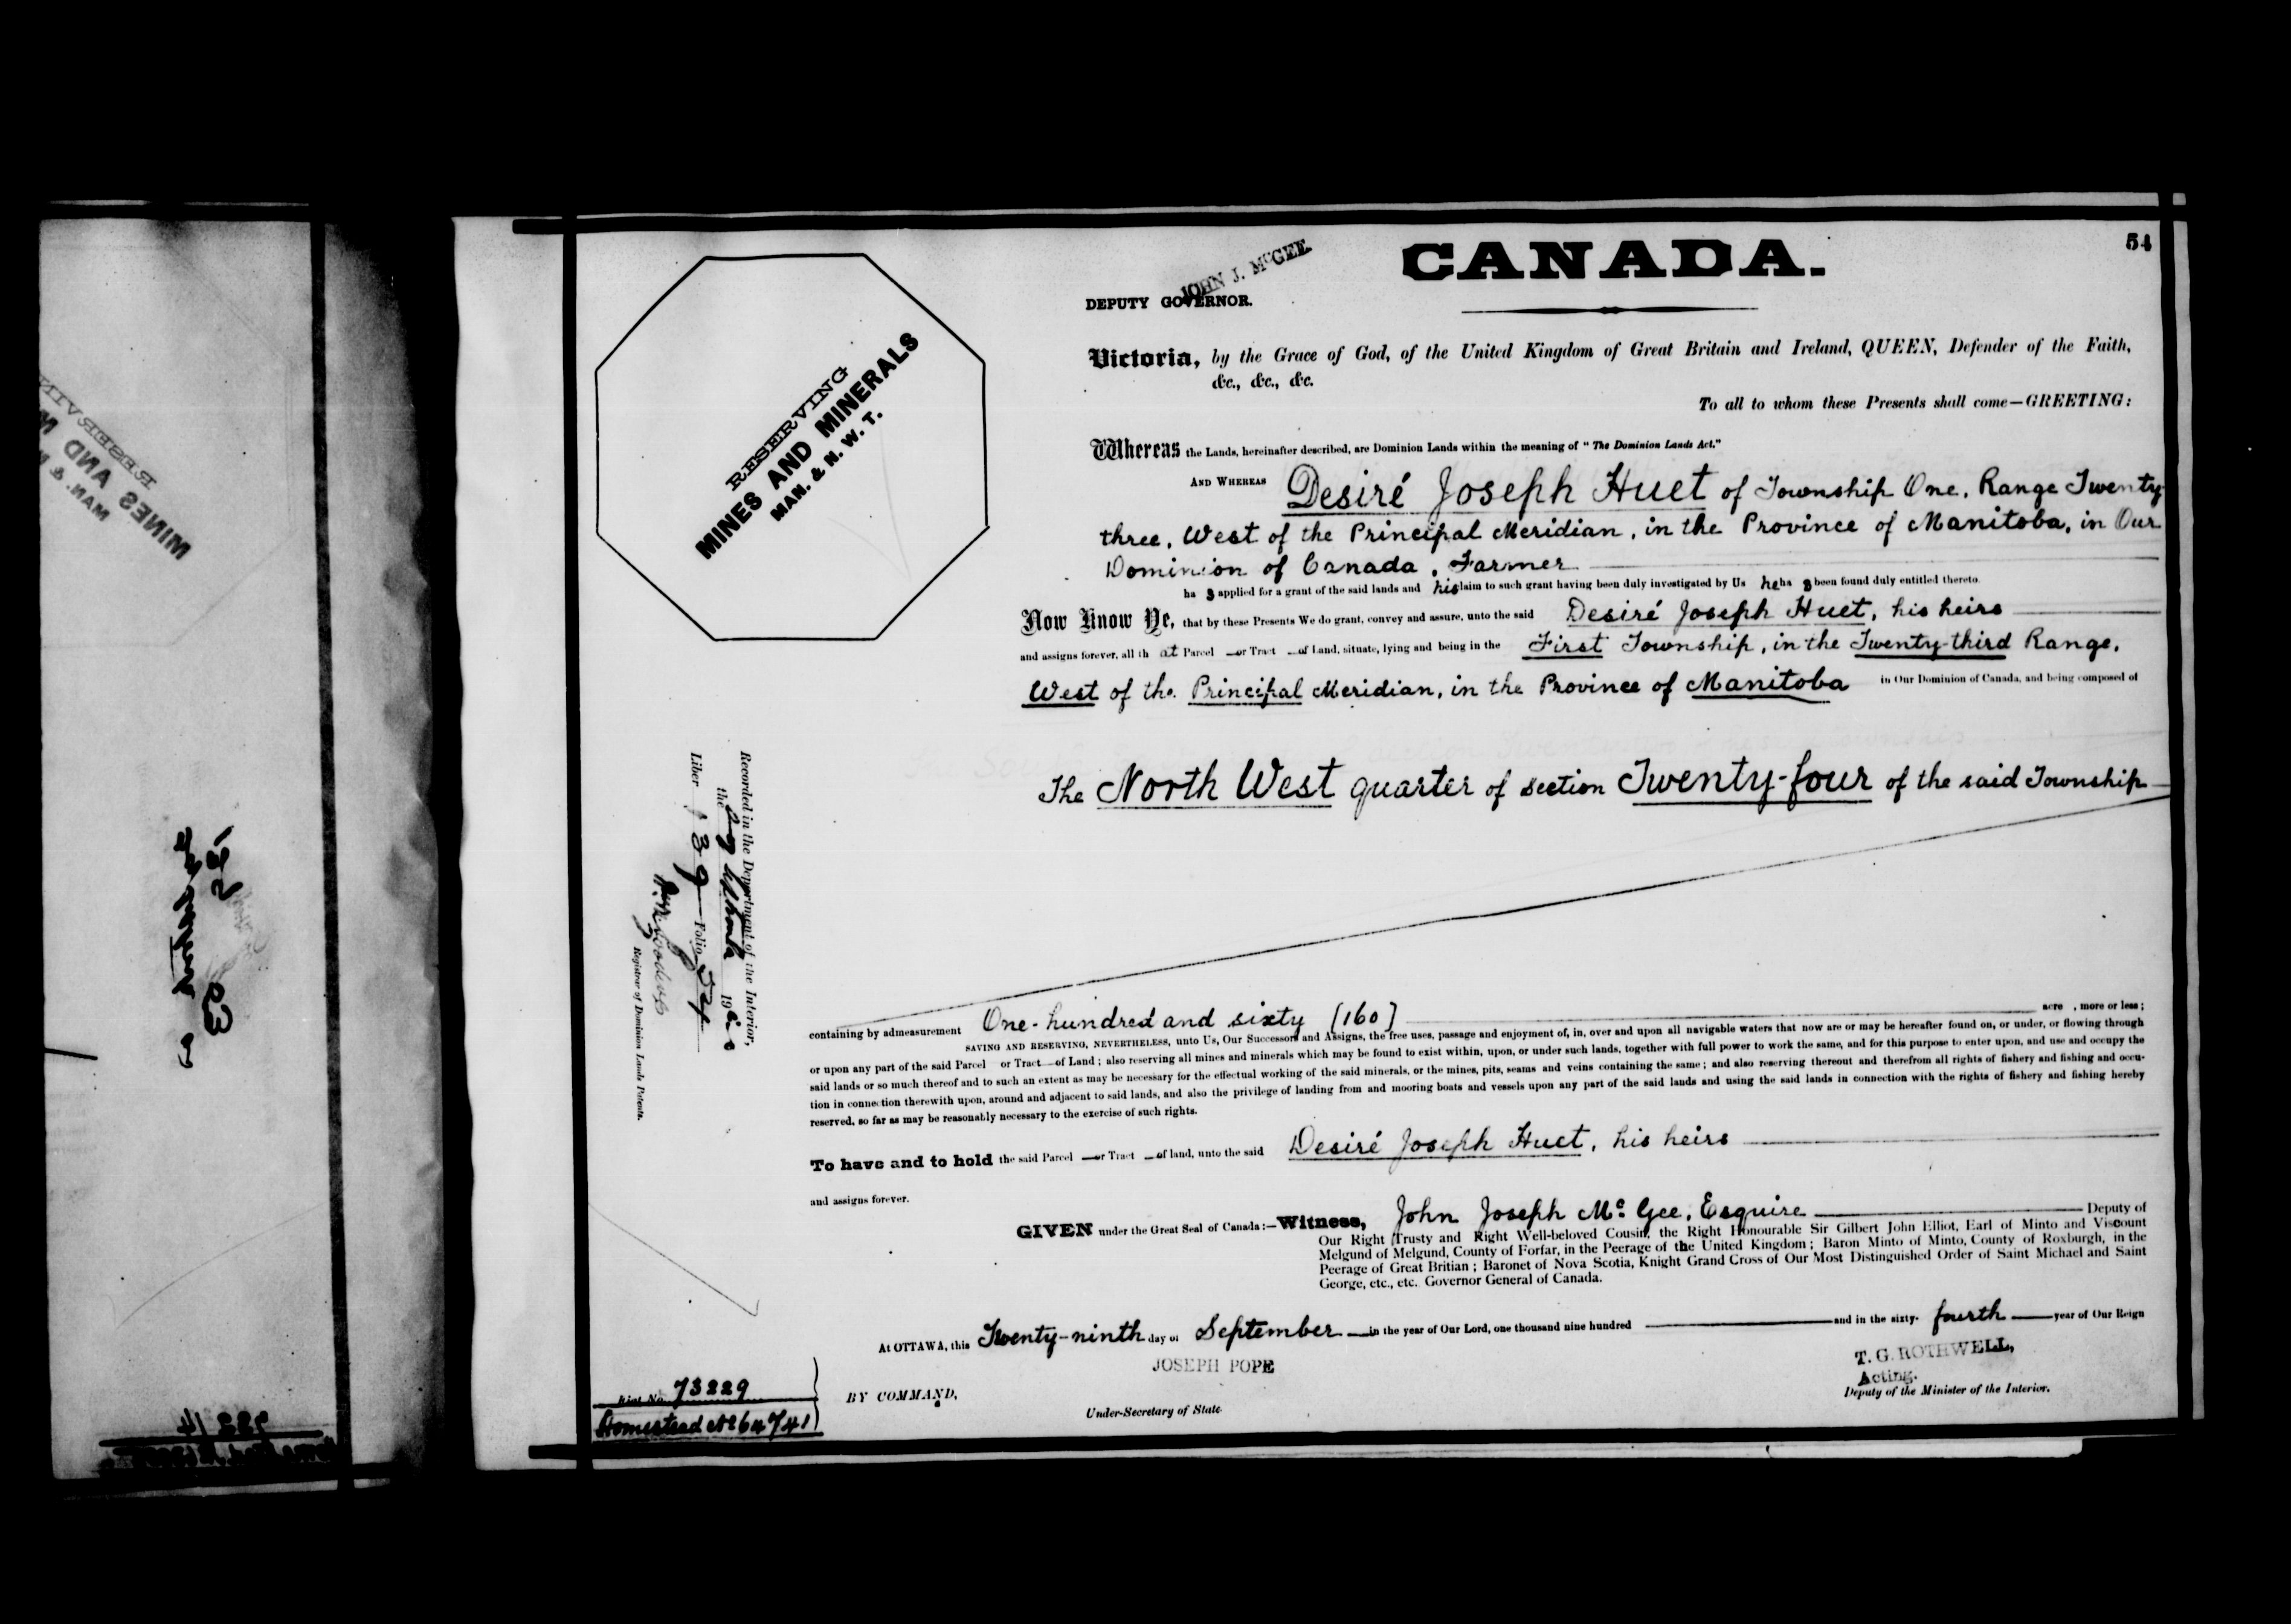 54
CANADA.
JOHN J. McGEE.
DEPUTY GOVERNOR.
RESERVING
MINES AND MINERALS
MAN. & N. W. T.
Victoria, by the Grace of God, of the United Kingdom of Great Britain and Ireland, QUEEN, Defender of the Faith,
&c., &c., &c.
To all to whom these Presents shall come—GREETING:
Whereas the Lands, hereinafter described, are Dominion Lands within the meaning of "The Dominion Lands Act."
AND WHEREAS Desiré Joseph Huet of Township One, Range Twenty-
three, West of the Principal Meridian, in the Province of Manitoba, in Our
Dominion of Canada, Farmer
ha s applied for a grant of the said lands and his claim to such grant having been duly investigated by Us he ha s been found duly entitled thereto.
Now Know Ye, that by these Presents We do grant, convey and assure, unto the said Desiré Joseph Huet, his heirs
and assigns forever, all th at Parcel or Tract of Land, situate, lying and being in the First Township, in the Twenty-third Range,
West of the Principal Meridian, in the Province of Manitoba in Our Dominion of Canada, and being composed of
The North West quarter of section Twenty-four of the said Township
Recorded in the Department of the Interior,
the 19
Liber 139 Folio 54
Registrar of Dominion Lands Patents.
containing by admeasurement One hundred and sixty [160] acre , more or less;
SAVING AND RESERVING, NEVERTHELESS, unto Us, Our Successors and Assigns, the free uses, passage and enjoyment of, in, over and upon all navigable waters that now are or may be hereafter found on, or under, or flowing through
or upon any part of the said Parcel or Tract of Land; also reserving all mines and minerals which may be found to exist within, upon, or under such lands, together with full power to work the same, and for this purpose to enter upon, and use and occupy the
said lands or so much thereof and to such an extent as may be necessary for the effectual working of the said minerals, or the mines, pits, seams and veins containing the same; and also reserving thereout and therefrom all rights of fishery and fishing and occu-
tion in connection therewith upon, around and adjacent to said lands, and also the privilege of landing from and mooring boats and vessels upon any part of the said lands and using the said lands in connection with the rights of fishery and fishing hereby
reserved, so far as may be reasonably necessary to the exercise of such rights.
To have and to hold the said Parcel or Tract of land, unto the said Desiré Joseph Huet, his heirs
and assigns forever.
GIVEN under the Great Seal of Canada:—Witness, John Joseph McGee, Esquire Deputy of
Our Right Trusty and Right Well-beloved Cousin, the Right Honourable Sir Gilbert John Elliot, Earl of Minto and Viscount
Melgund of Melgund, County of Forfar, in the Peerage of the United Kingdom; Baron Minto of Minto, County of Roxburgh, in the
Peerage of Great Britian; Baronet of Nova Scotia, Knight Grand Cross of Our Most Distinguished Order of Saint Michael and Saint
George, etc., etc. Governor General of Canada.
At OTTAWA, this Twenty-ninth day of September in the year of Our Lord, one thousand nine hundred and in the sixty- fourth year of Our Reign
JOSEPH POPE
T. G. ROTHWELL,
Acting.
BY COMMAND,
Deputy of the Minister of the Interior.
Under-Secretary of State
No 73229
Homestead No 64741